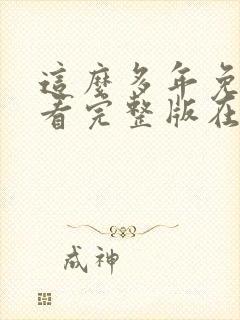 這麼多年免
看完整版在
成神